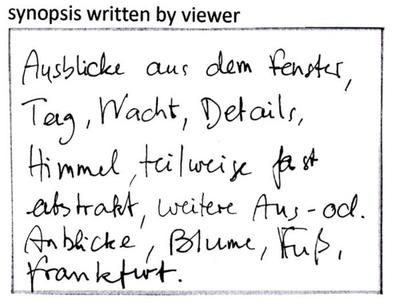 synopsis written by viewer
Ausblicke aus dem Fenster,
Tag, Nacht, Details,
Himmel, teilweise fast
abstrakt, weitere Aus-od.
Anblicke, Blume, Fuß,
Frankfurt.